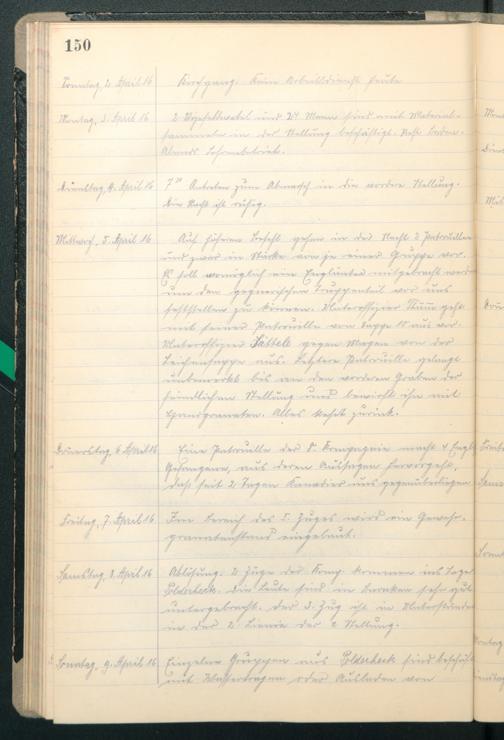 150
Sonntag, 2. April 16 Kirchgang. Kein Arbeitsdienst heute
Montag, 3. April 16 2 Vizefeldwebel und 24 Mann sind mit Material-
sammeln in der Stellung beschäftigt. Rest baden.
Abends Lohnbetrieb.
Dienstag, 4. April 16 7 Antreten zum Abmarsch in die vordere Stellung.
Die Nacht ist ruhig.
Mittwoch, 5. April 16 Auf höheren Befehl gehen in der Nacht 2 Patrouillen
und zwar in Stärke von je einer Gruppe vor.
Es soll womöglich ein Engländer mitgebracht werden
um den gegnerischen Truppenteil vor uns
feststellen zu können. Unteroffizier geht
mit seiner Patrouille von Sappe aus vor.
Unteroffizier Sattele gegen Morgen von der
Leichensappe aus. Letztere Patrouille gelangt
unbemerkt bis an den vorderen Graben der
feindlichen Stellung und bewirft ihn mit
Handgranaten. Alles kehrt zurück.
Donnerstag, 6. April 16 Eine Patrouille der 8. Kompagnie macht 4 Engl.
Gefangene, aus deren Aussagen hervorgeht,
daß seit 2 Tagen Kanadier uns gegenüberliegen.
Freitag, 7. April 16 Im Bereich des 3. Zuges wird ein Gewehr-
granatenstand eingebaut.
Samstag, 8. April 16 Ablösung. 2 Züge der Komp. kommen ins Lager
Polderhoek. Die Leute sind in Baracken sehr gut
untergebracht. Der 3. Zug ist in Unterständen
in der 2. Linie der Stellung.
Sonntag, 9. April 16 Einzelne Gruppen aus Polderhoek sind beschäftigt
mit Wassertragen oder Ausladen von